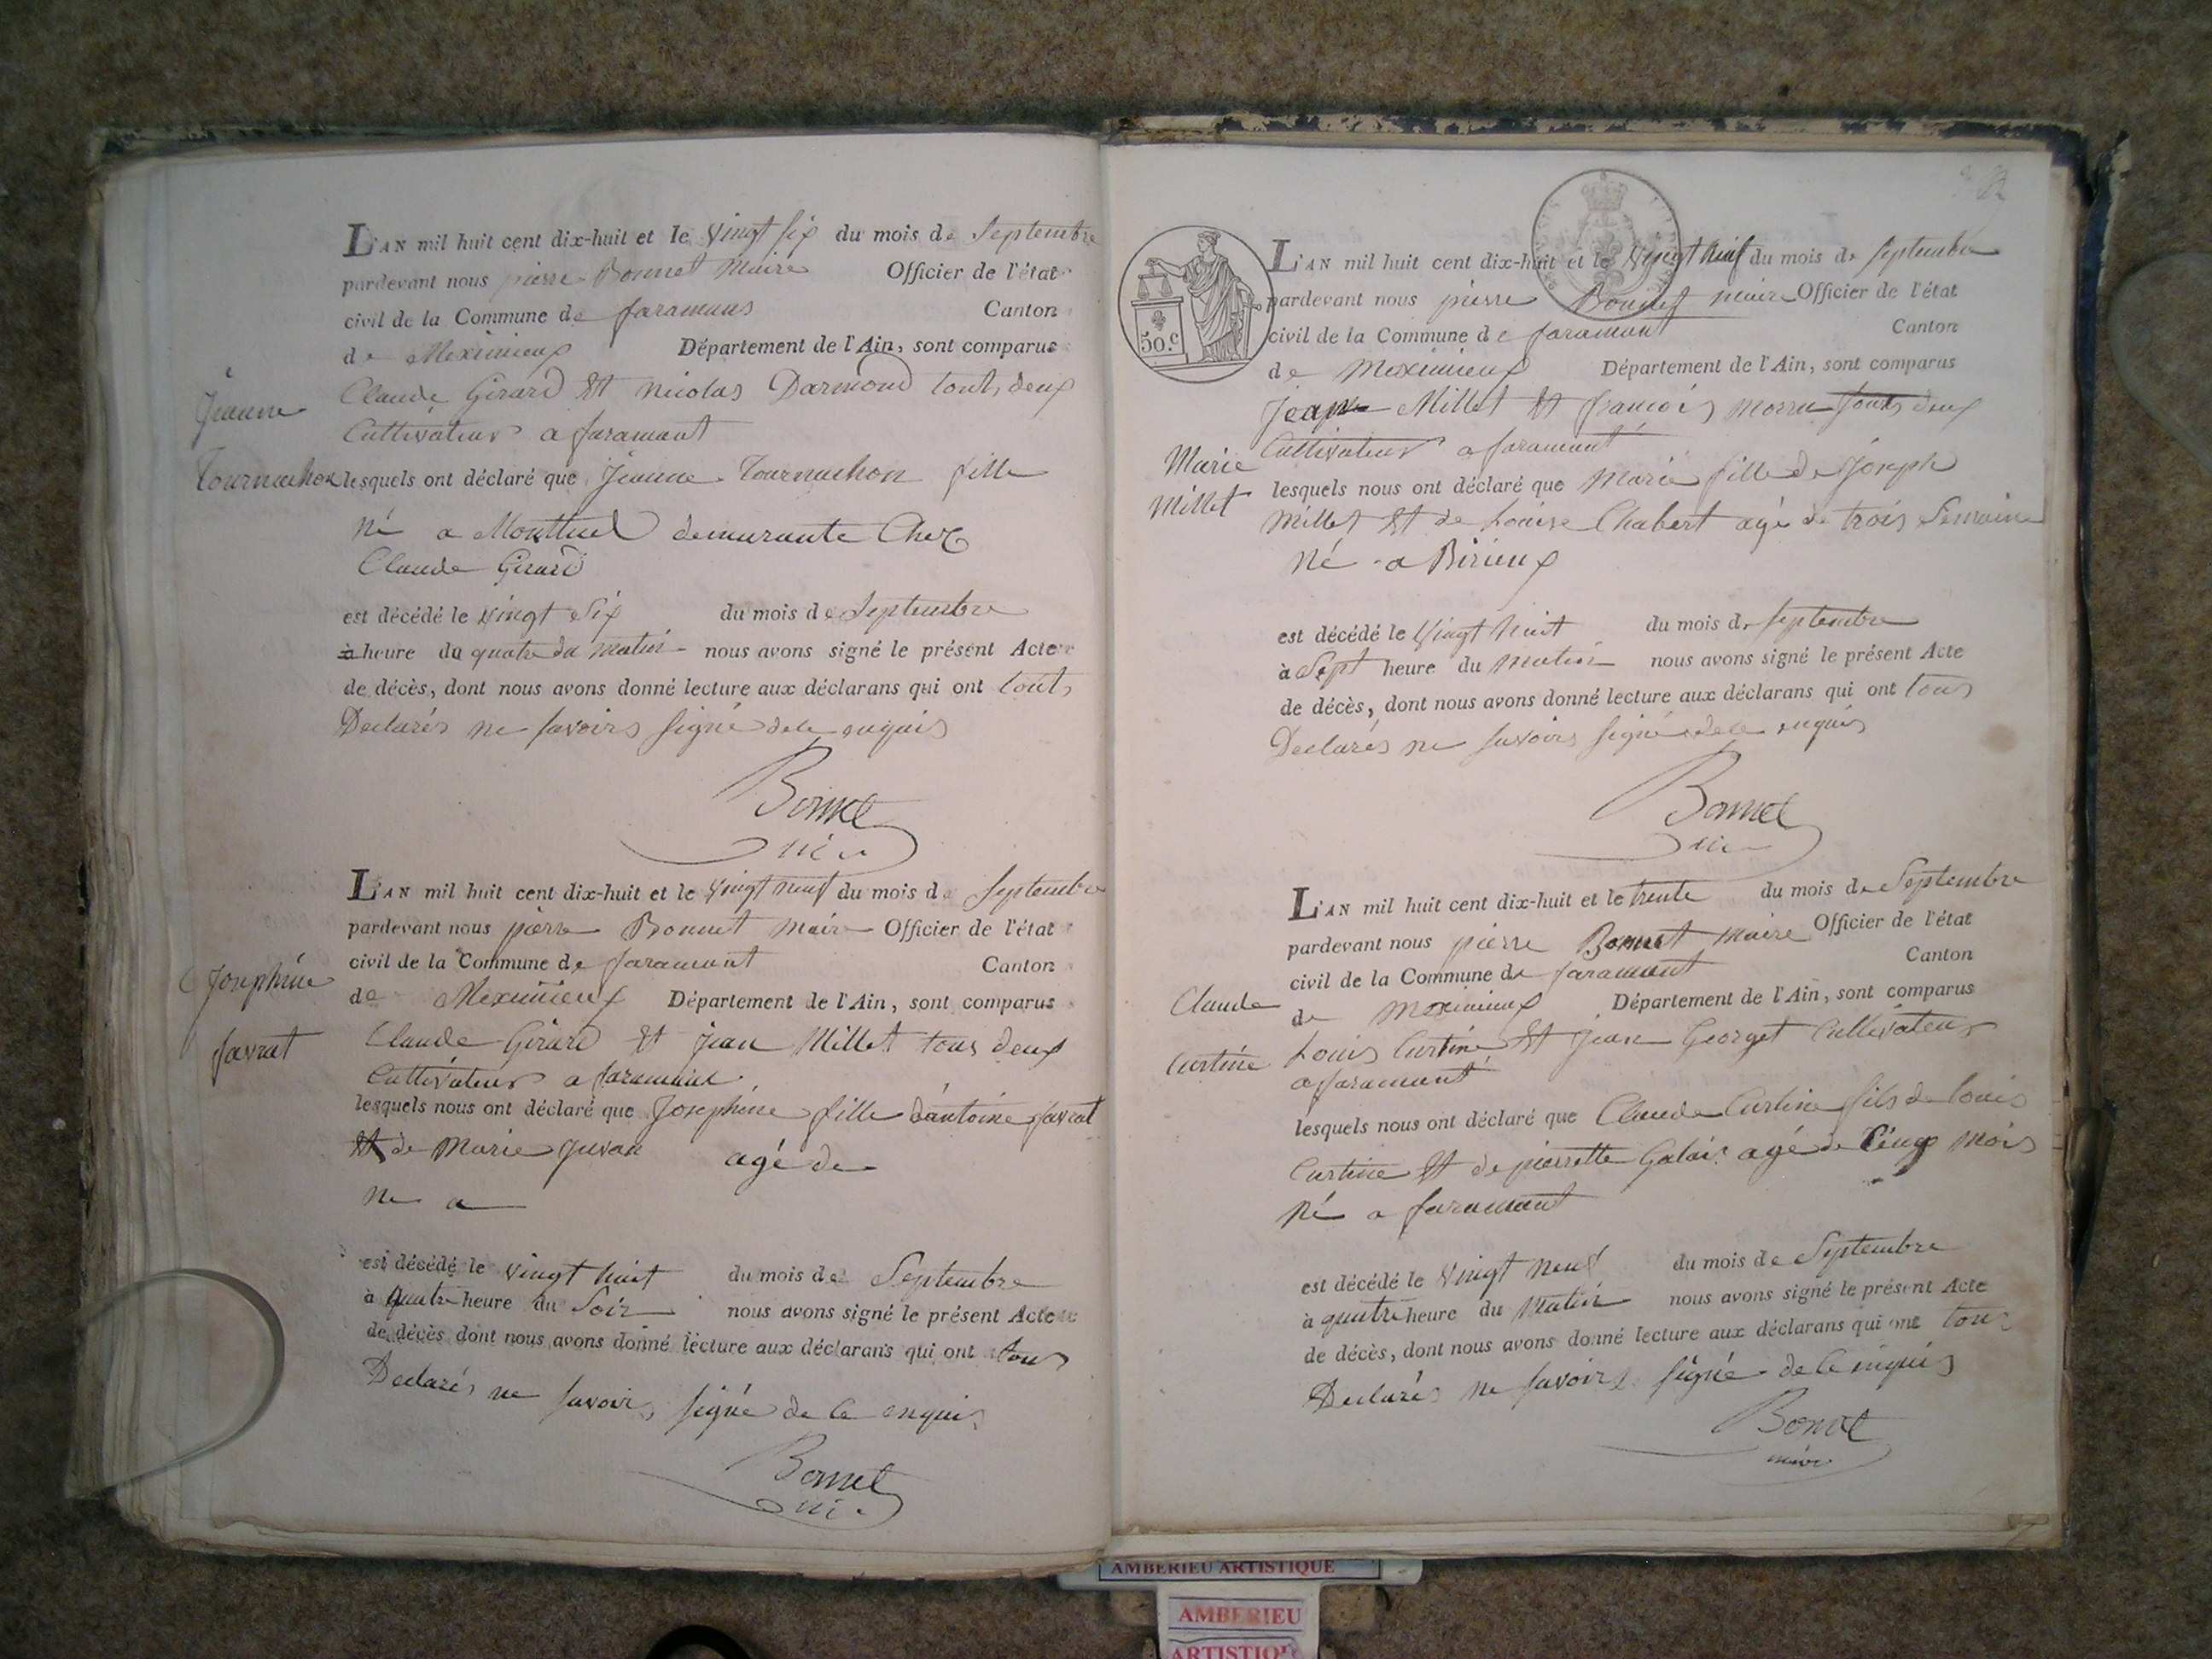 L'AN mil huit cent dix-huit et le vingt six du mois de Septembre
pardevant nous pierre Bonnet Maire Officier de l'état
civil de la Commune de faramans Canton
de Meximieux Département de l'Ain, sont comparus
Claude Girard Et Nicolas Darmond tout, deux
Cultivateur a faramant
Jeanne
Tournachon
lesquels ont déclaré que Jeanne Tournachon fille
Né a Montluel demurante Chez
Claude Girard
est décédé le vingt Six du mois de Septembre
à heure du quatre du Matin nous avons signé le présent Acte
de décès, dont nous avons donné lecture aux déclarans qui ont tout,
Declarés ne savoirs signé dele enquis
Bonnet
L'AN mil huit cent dix-huit et le vingt neuf du mois de Septembre
pardevant nous pierre Bonnet Maire Officier de l'état
civil de la Commune de faramant Canton
de Meximieux Département de l'Ain, sont comparus
Josephine
favrat
Claude Girard Et Jean Millet tous deux
Cultivateur a faramant
lesquels nous ont déclaré que Josephine fille dantoine favrat
Et de Marie agé de
ne a
est décédé le vingt huit du mois de Septembre
à quatre heure du Soir nous avons signé le présent Acte
de décès dont nous avons donné lecture aux déclarans qui ont tous
Declarés ne savoirs signé de ce enquis
Bonnet
50.c
L'AN mil huit cent dix-huit et le vingt neuf du mois de septembre
pardevant nous pierre Bonnet maire Officier de l'état
civil de la Commune de faramant Canton
de Meximieux Département de l'Ain, sont comparus
Jean Millet Et francois morru touts deux
Cultivateur a faramant
Marie
Millet
lesquels nous ont déclaré que Marie fille de Joseph
Millet Et de Louise Chabert agé de trois Semaine
Né a Birieux
est décédé le vingt huit du mois de septembre
à Sept heure du matin nous avons signé le présent Acte
de décès, dont nous avons donné lecture aux déclarans qui ont tous
Declarés ne savoirs signé dele enquis
Bonnet
L'AN mil huit cent dix-huit et le trente du mois de Septembre
pardevant nous pierre Bonnet maire Officier de l'état
civil de la Commune de faramant Canton
de meximieux Département de l'Ain, sont comparus
Claude
Curtine
Louis Curtine Et Jean Georget Cultivateur
a faramant
lesquels nous ont déclaré que Claude Curtine fils de louis
Curtine Et de pierrette Galais agé de Cinq Mois
Né a faramant
est décédé le vingt neuf du mois de Septembre
à quatre heure du Matin nous avons signé le présent Acte
de décès, dont nous avons donné lecture aux déclarans qui ont tous
Declarés ne savoirs signé de ce enquis
Bonnet
maire
AMBERIEU ARTISTIQUE
AMBERIEU
ARTISTIQUE